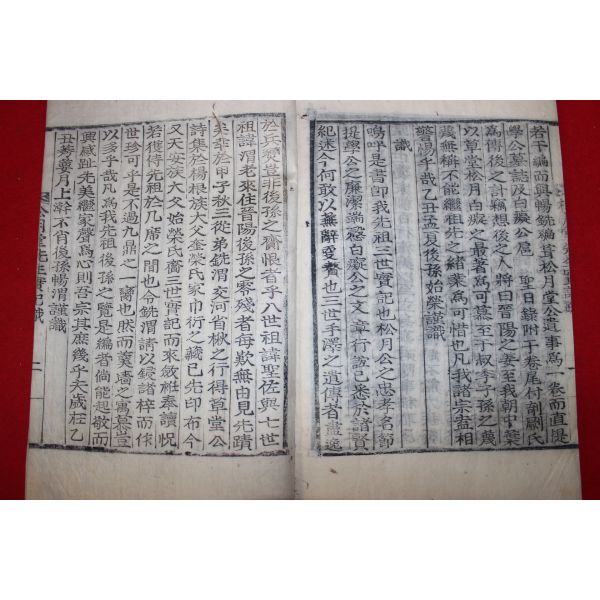 若干編而興暢銑編首松月堂公遺事爲一卷而直提
學公墓誌及白癡公扈 聖日錄附于卷尾付剞劂氏
爲傳後之計竊想後之人將曰晉陽之 至我朝中葉
以草堂松月白癡公之最者爲可慕至于叔季子孫之幾
殘無稱不能繼先祖之緖業爲可惜也凡我諸宗盍相
警惕乎哉乙丑孟夏後孫始榮謹識
識
嗚呼是書卽我先祖三世實記也松月公之忠孝名節
提學公之廉潔端慤白癡公之文章行誼已悉於諸賢
紀述今何敢以無辭更贅也三世手澤之遺傳者盡逸
於兵燹豈非後孫之齎恨者乎八世祖諱聖佐與七世
祖諱渭老來住晉陽後孫之零殘者每歎無由見先蹟
矣 於甲子秋三從弟銑渭交河省楸之行得草堂公
詩集於楊根族大父奎榮氏家巾衍之藏已先印布今
又天安族大父始榮氏齎三世實記而來斂袵奉讀怳
若獲侍先祖於几席之間也令銑渭請以鋟諸梓而作
世珍可乎是不過九鼎之一臠也然而羹墻之寓慕豈
以多乎哉凡爲我先祖後孫之覽是編者倘能起敬而
興感趾先美繼家聲爲心則吾宗其庶幾乎夫歲在乙
丑蕤賓月上澣不肖後孫暢渭謹識